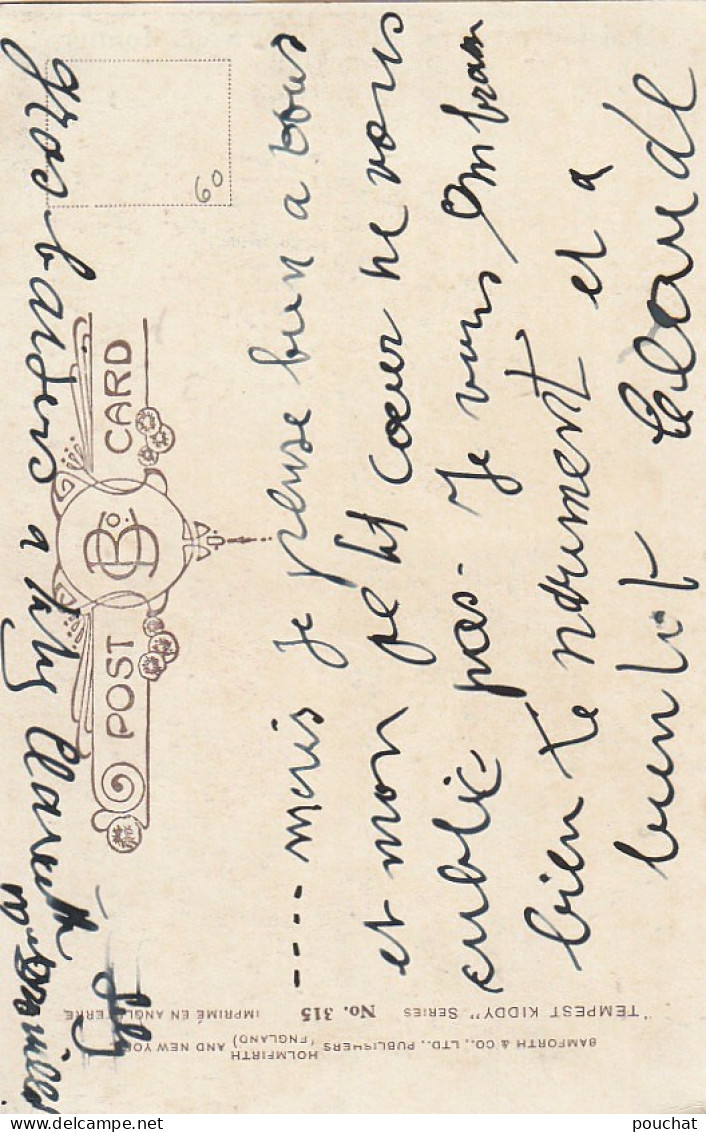 ---- mais je pense bien a vous
et mon petit cœur ne vous
oublie pas - Je vous embrass
bien tendrement et a
bientot Claude
gros baisers a
POST CARD
B & Co. Ltd
60
"TEMPEST KIDDY" SERIES No. 315 IMPRIMÉ EN ANGLETERRE
BAMFORTH & CO., LTD., PUBLISHERS HOLMFIRTH (ENGLAND) AND NEW YORK
pouchat